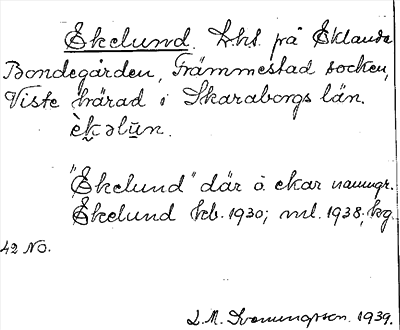 Ekelund. Lhs. på Eklanda
Bondegården, Främmestad socken,
Viste härad i Skaraborgs län.
èk̬əlūn.
"Ekelund" där ò ekar namngr.
Ekelund kb. 1930; ml. 1938, kg.
42 NO.
L.M. Svenungsson. 1939.